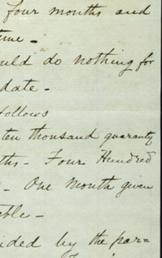 four months and
time -
uld do nothing for
date -
follows
ten thousand guaranty
ths - Four Hundred
- One Month given
ble -
ided by the par=